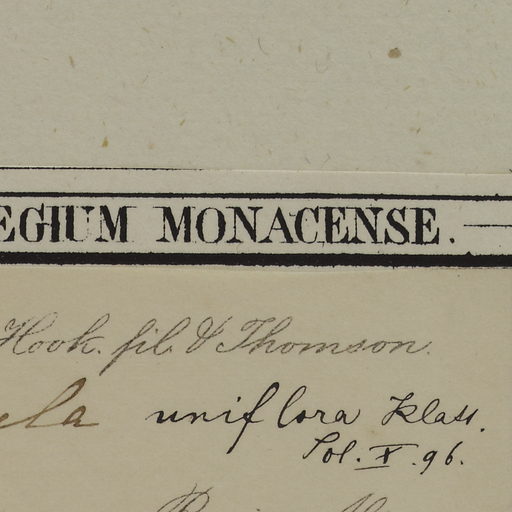 EGIUM MONACENSE.
Hook. fil. & Thomson.
ela uniflora Klatt.
Sol. X. 96.